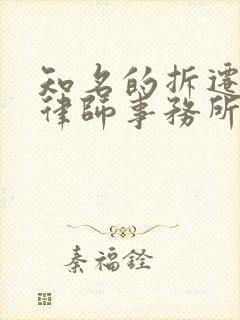 知名的拆遷
律師事務所
秦福銓